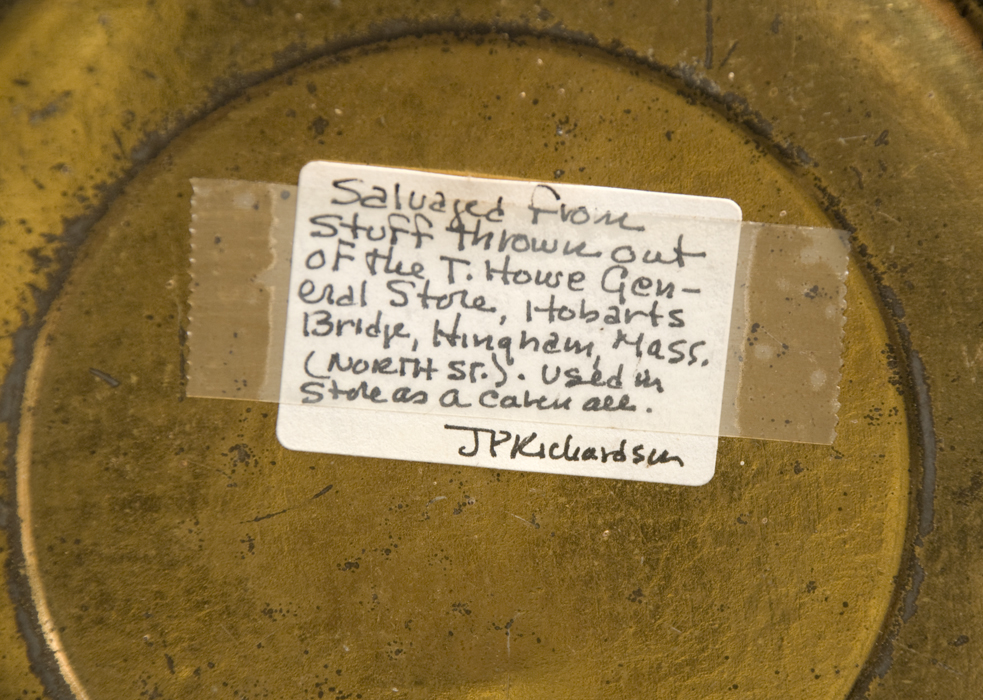 Salvaged from
stuff thrown out
of the T. Howe Gen-
eral Store, Hobarts
Bridge, Hingham, Mass.
(NORTH ST.). Used in
Store as a catch all.
JPRichardson